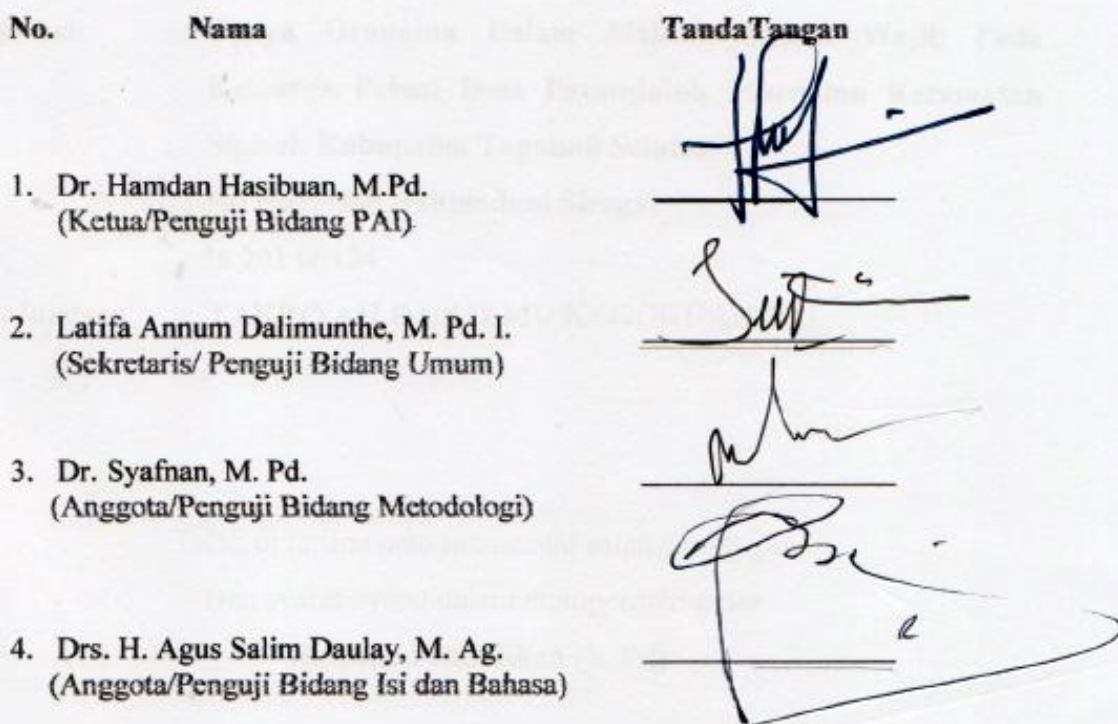 No. Nama TandaTangan
1. Dr. Hamdan Hasibuan, M.Pd.
(Ketua/Penguji Bidang PAI)
2. Latifa Annum Dalimunthe, M. Pd. I.
(Sekretaris/ Penguji Bidang Umum)
3. Dr. Syafnan, M. Pd.
(Anggota/Penguji Bidang Metodologi)
4. Drs. H. Agus Salim Daulay, M. Ag.
(Anggota/Penguji Bidang Isi dan Bahasa)